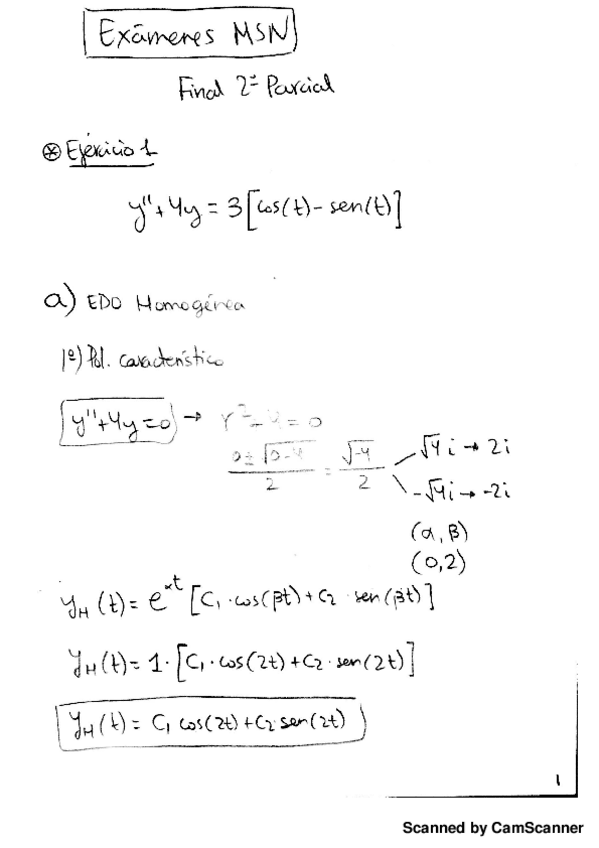 Exámenes MSN
Final 2º Parcial
⊛ Ejercicio 1
y''+4y = 3[cos(t) - sen(t)]
a) EDO Homogénea
1º) Pol. característico
y''+4y=0 → r² - 4 = 0
0 ± √0-4 / 2 = √-4 / 2
√4 i → 2i
-√4 i → -2i
(α, β)
(0,2)
y_H (t) = e^αt [C₁ · cos(βt) + C₂ · sen(βt)]
y_H (t) = 1 · [C₁ · cos(2t) + C₂ · sen(2t)]
y_H (t) = C₁ cos(2t) + C₂ sen(2t)
1
Scanned by CamScanner